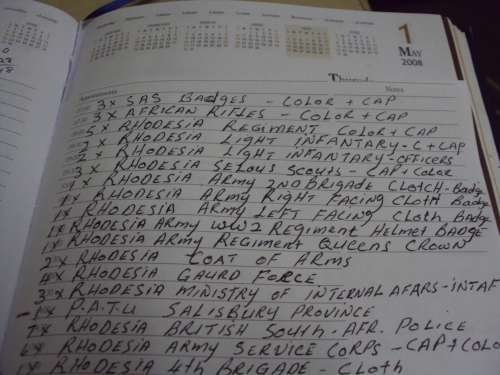 1
MAY
2008
Appointments
Notes
3 x SAS BADGES - COLOR + CAP
3 x AFRICAN RIFLES - COLOR + CAP
5 x RHODESIA REGIMENT COLOR + CAP
2 x RHODESIA LIGHT INFANTARY - C + CAP
2 x RHODESIA LIGHT INFANTARY - OFFICERS
3 x RHODESIA SELOUS SCOUTS - CAP + COLOR
1 x RHODESIA ARMY 2ND BRIGADE CLOTCH - Badge
1 x RHODESIA ARMY RIGHT FACING CLOTH Badge
1 x RHODESIA ARMY LEFT FACING Cloth Badge
1 x RHODESIA ARMY WW2 REGIMENT HELMET BADGE
1 x RHODESIA ARMY REGIMENT QUEENS CROWN
2 x RHODESIA COAT OF ARMS
4 x RHODESIA GAURD FORCE
3 x RHODESIA MINISTRY OF INTERNAL AFARS - INTAF
- 1 x P.A.T.U SALISBURY PROVINCE
7 x RHODESIA BRITISH SOUTH - AFR. POLICE
6 x RHODESIA ARMY SERVICE CORPS - CAP + COLO
1 x RHODESIA 4th BRIGADE - Cloth